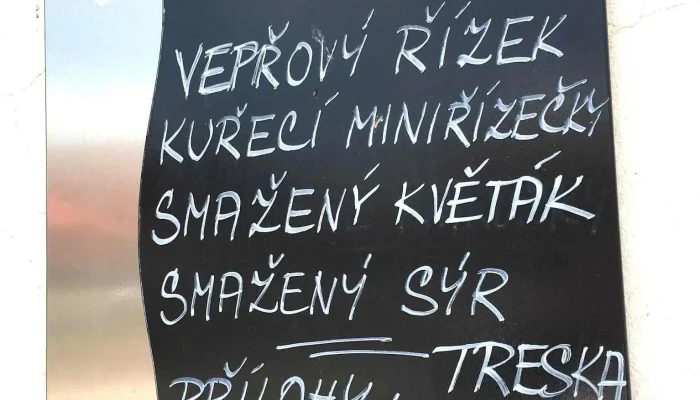 VEPŘOVÝ ŘÍZEK
KUŘECÍ MINIŘÍZEČKY
SMAŽENÝ KVĚTÁK
SMAŽENÝ SÝR
TRESKA
PŘÍLOHY: